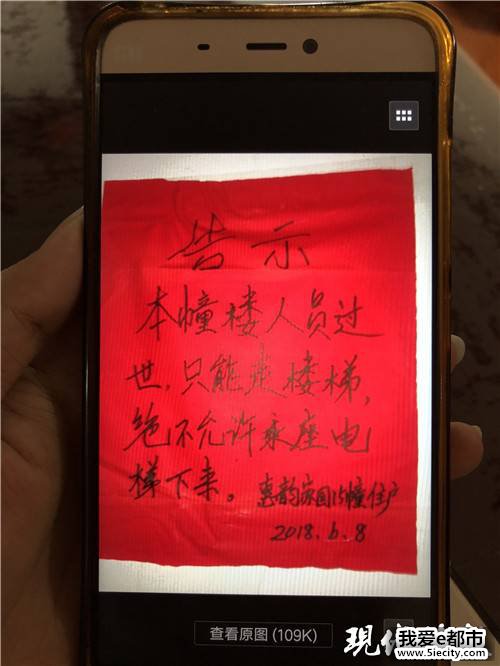 告示
本幢楼人员过
世，只能楼梯，
绝不允许乘座电
梯下来。惠韵家园15幢住户
2018.6.8
查看原图(109K)
现代
我爱e都市
www.5iecity.com